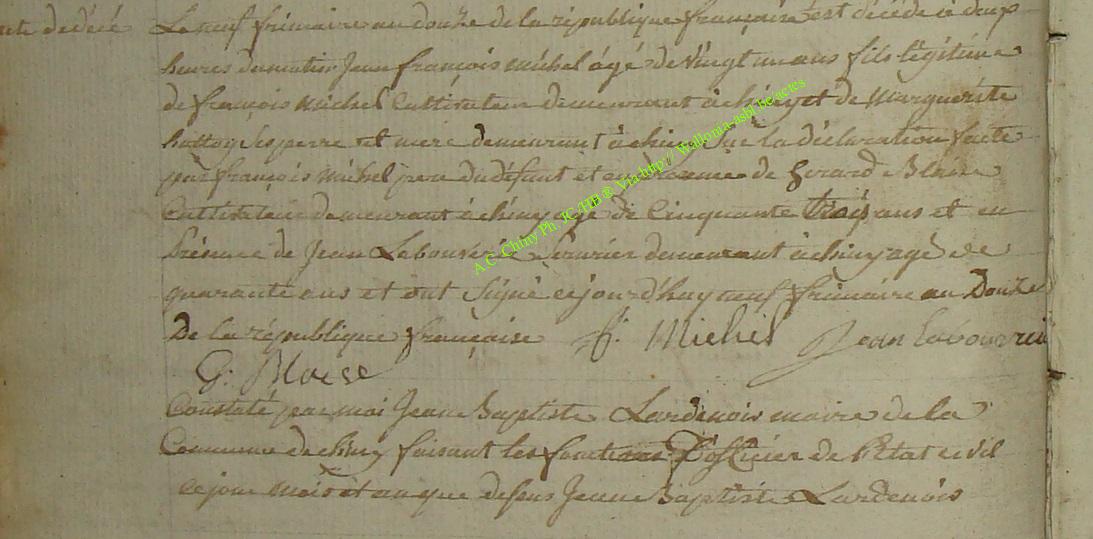 acte décéé
Le neuf frimaire an douze de la république française est décédé à deux
heures du matin Jean françois michel âgé de vingt un ans fils légitime
de françois michel Cultivateur demeurant à chiny et de Marguerite
ses perre et mere demeurant à chiny Sur la déclaration faite
par françois michel pere du défunt et en de Gerard Blaise
Cultivateur demeurant à chiny agé de Cinquante trois ans et en
Présence de Jean Serurier demeurant à chiny agé de
quarante ans et ont Signé cejourd'huy neuf frimaire an Douze
De la république française f. Michel Jean
G: Blaise
Constaté par moi Jean Baptiste Lardenois maire de la
Commune de chiny faisant les fonctions D'officier de l'Etat civil
Ce jour mois et an que desus Jean Baptiste Lardenois
A.C. Chiny Ph JC-HB ® Via-http// Wallonia-asbl be.actes